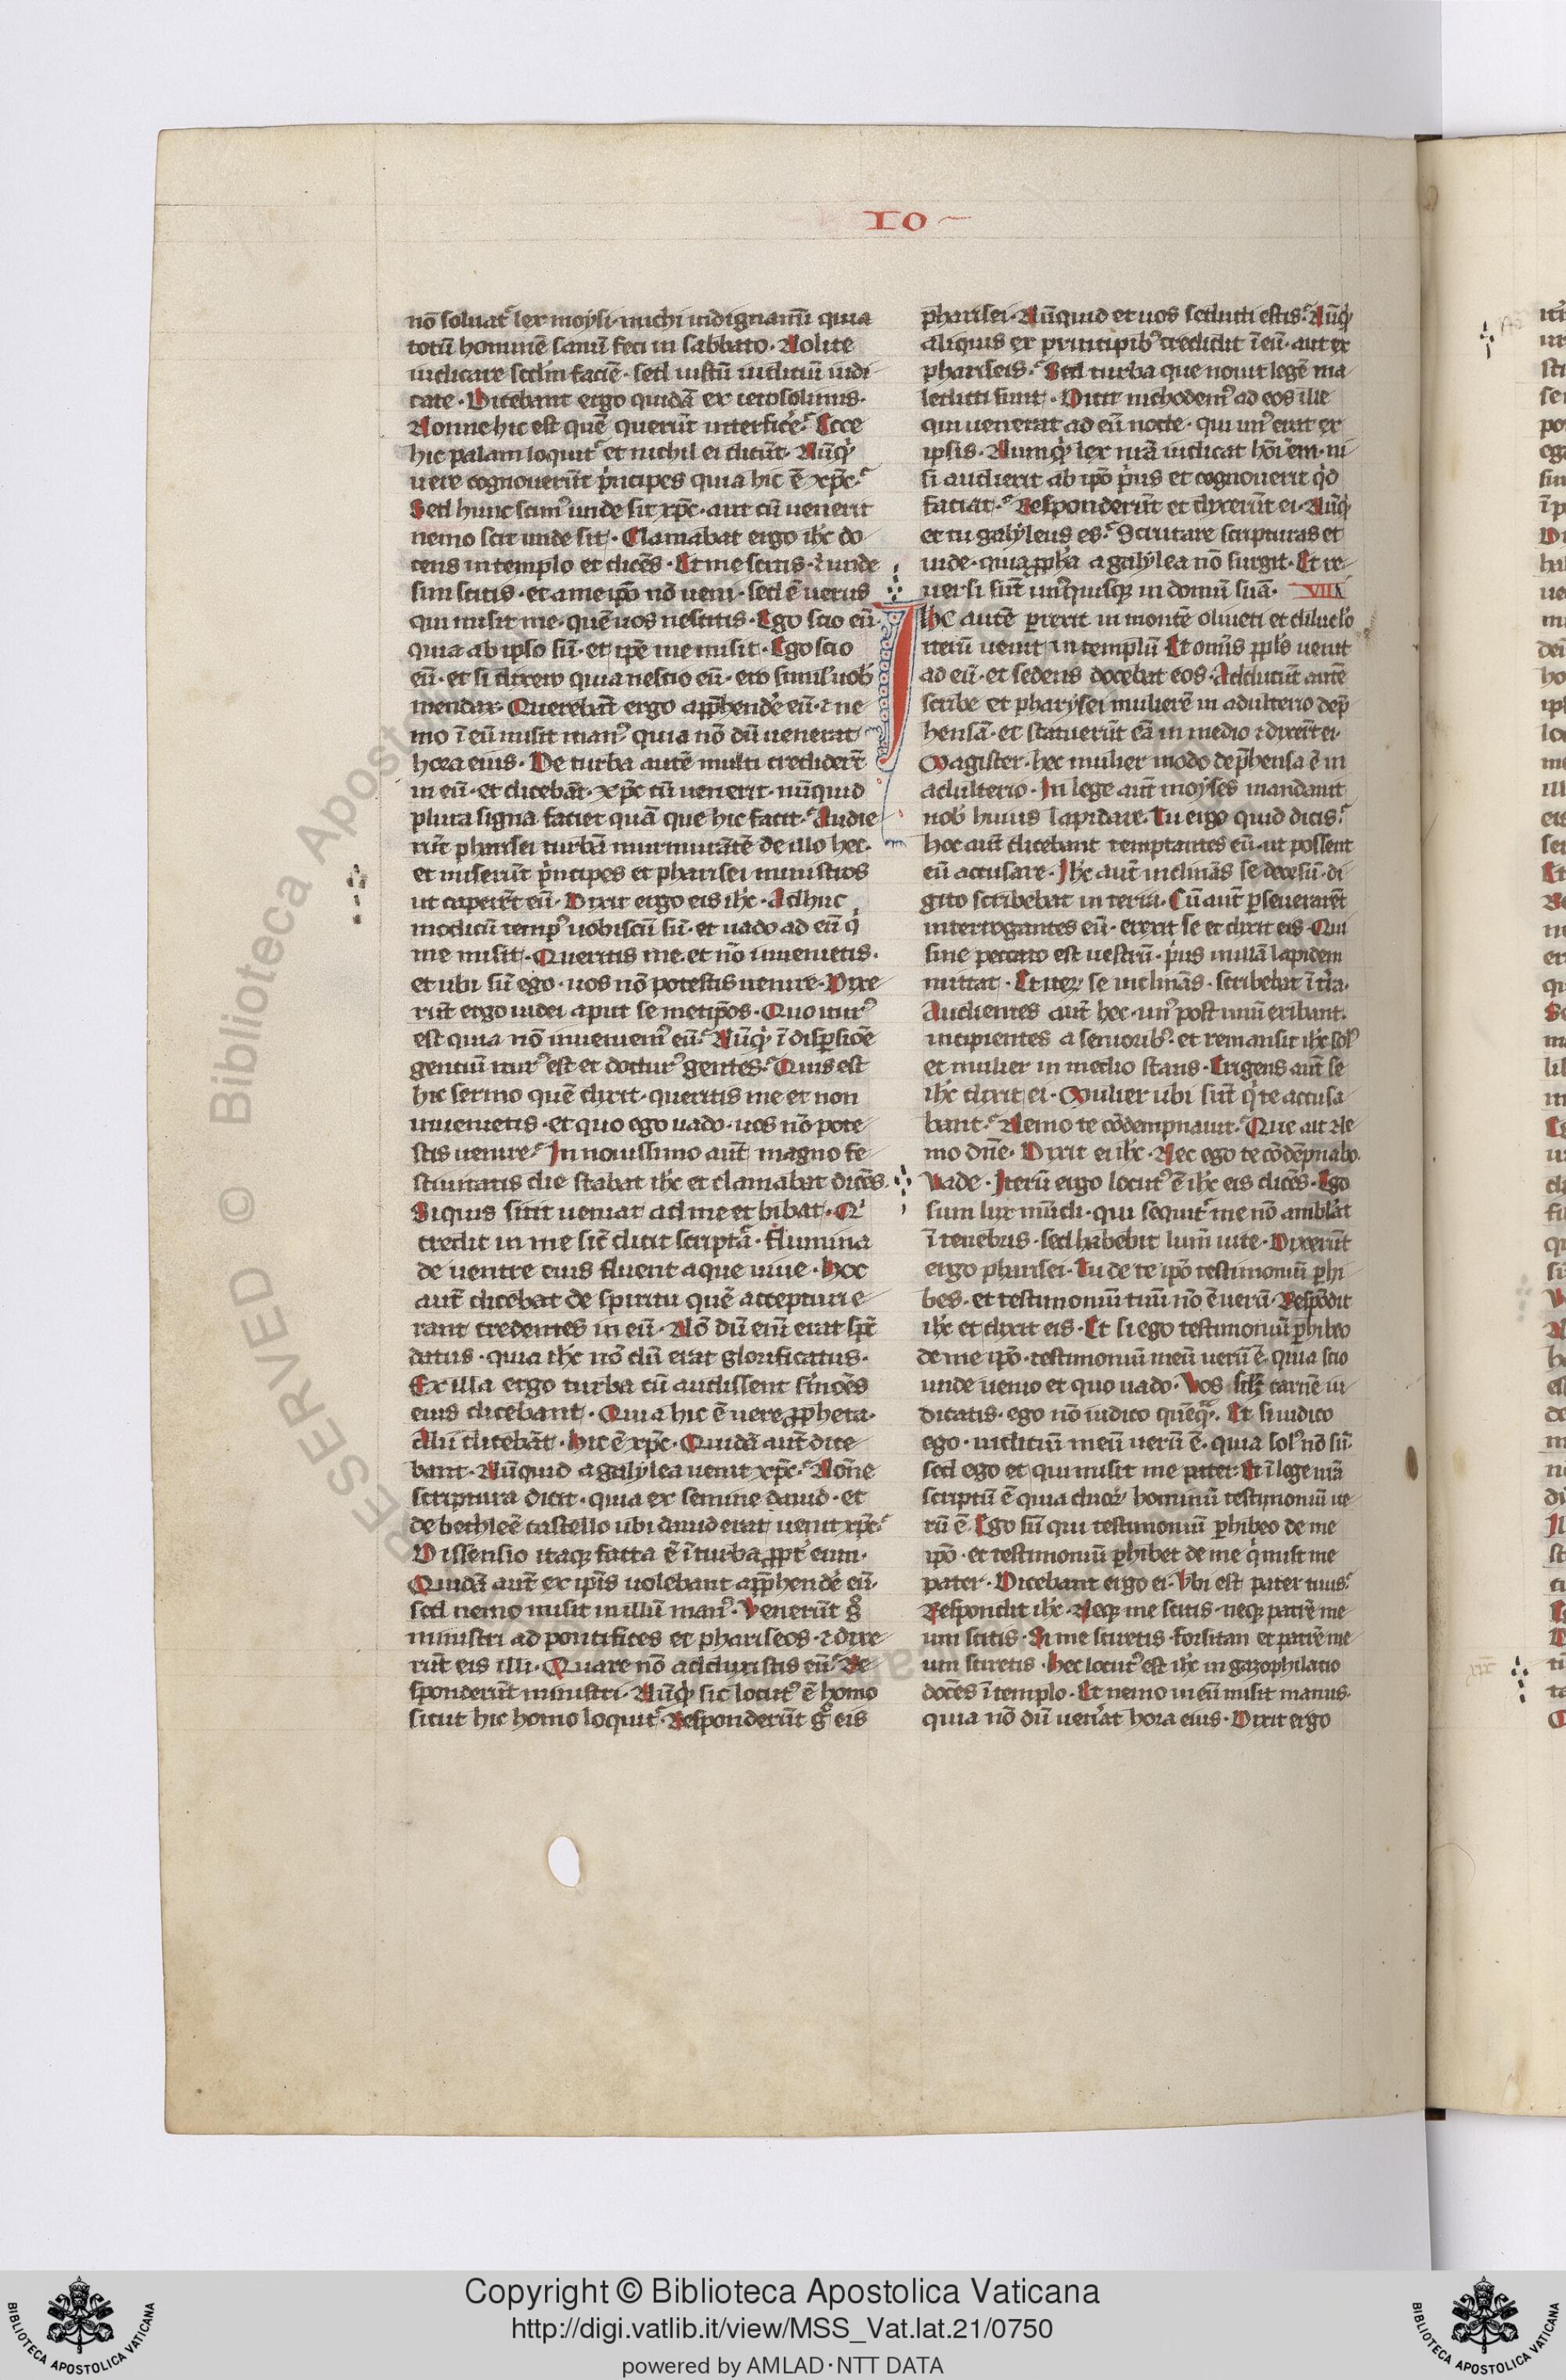 IO
nō soluat᷑ lex moysi· michi indignamī quia
totū hominē sanū feci in sabbato· Nolite
iudicare scd̄m faciē· sed iustū iudiciū iudi
cate· Dicebant ergo quidā ex ierosolimis·
Nonne hic est quē querūt interfice᷑· Ecce
hic palam loquit᷑ et nichil ei dicūt· Nūqͥ
uere cognouerūt pͥncipes quia hic ē xp̄c·
Sed hunc scimꝰ unde sit· xp̄c· aut cū uenerit
nemo scit unde sit· Clamabat ergo ih̄c do
cens in templo et dicēs· Et me scitis· ⁊ unde
sim scitis· et a me ip̄o nō ueni· sed ē uerus
qui misit me· quē uos nescitis· Ego scio eū·
quia ab ipso sū· et ip̄e me misit· Ego scio
eū· et si dixero quia nescio eū· ero similꝰ uob̄
mendax· Querebāt ergo app̄hendē eū· ⁊ ne
mo ī eū misit manꝰ quia nō dū uenerat
hora eius· De turba autē multi credider̄t
in eū· et dicebāt· xp̄c cū uenerit· nūquid
plura signa faciet quā que hic facit· Audie
rūt pharisei turbā murmurātē de illo hec·
et miserūt pͥncipes et pharisei ministros
ut caperēt eū· Dixit ergo eis ih̄c· Adhuc
modicū tempꝰ uobiscū sū· et uado ad eū qͥ
me misit· Queritis me· et nō inuenietis·
et ubi sū ego· uos nō potestis uenire· Dixe
rūt ergo iudei aput se metip̄os· Quo iturꝰ
est quia nō inueniemꝰ eū· Nūqͥ ī disp̄sioē
gentiū iturꝰ est et docturꝰ gentes· Quis est
hic sermo quē dixit· queritis me et non
inuenietis· et quo ego uado· uos nō pote
stis uenire· In nouissimo aut̄ magno fe
stiuitatis die stabat ih̄c et clamabat dicēs·
Siquis sitit ueniat ad me et bibat· Qͥ
credit in me sic̄ dicit scriptᷓa· flumina
de uentre eius fluent aque uiue· Hoc
aut̄ dicebat de spiritu quē accepturi e
rant credentes in eū· Nō dū eni erat sp̄c
datus· quia ih̄c nō dū erat glorificatus·
Ex illa ergo turba cū audissent s͛moēs
eius dicebant· Quia hic ē uere ꝓpheta·
Alii dicebāt· hic ē xp̄c· Quidā aut̄ dice
bant· Nūquid a galylea uenit xp̄c· Nōne
scriptura dicit· quia ex semine dauid· et
de bethleē castello ubi dauid erat uenit xp̄c·
Dissensio itaqꝫ facta ē ī turba ꝓpt̄ eum·
Quidā aut̄ ex ip̄is uolebant app̄hendē eū·
sed nemo misit in illū manꝰ· Venerūt g̊
ministri ad pontifices et phariseos· ⁊ dixe
rūt eis illi· Quare nō adduxistis eū· Re
sponderūt ministri· Nūqͥ sic locutꝰ ē homo
sicut hic homo loquit᷑· Responderūt g̊ eis
pharisei· Nūquid et uos seducti estis· Nūqͥ
aliquis ex principibꝰ credidit ī eū· aut ex
phariseis· Sed turba que nouit legē ma
ledicti sunt· Dixit nichodemꝰ ad eos ille
qui uenerat ad eū nocte· qui unꝰ erat ex
ipsis· Numqͥ lex n̄ra iudicat hoīem· ni
si audierit ab ip̄o pͥus et cognouerit qͥd
faciat· Responderūt et dixerūt ei· Nūqͥ
et tu galyleus es· Scrutare scripturas et
uide· quia ꝓph̄a a galylea nō surgit· Et re
uersi sūt unꝰquisqꝫ in domū suā· VIII
Ih̄c autē ꝑrexit in montē oliueti et diluclo͛
iterū uenit in templū Et omīs pp̄ls uenit
ad eū· et sedens docebat eos· Adducūt autē
scribe et pharysei mulierē in adulterio dep̄
hensā· et statuerūt eā in medio ⁊ dixer̄t ei·
Magister· hec mulier modo dep̄hensa ē in
adulterio· In lege aut̄ moyses mandauit
nob̄ huius lapidare· Tu ergo quid dicis·
hoc aut̄ dicebant temptantes eū· ut possent
eū accusare· Ih̄c aut̄ inclinās se deorsū· di
gito scribebat in terra· Cū aut̄ ꝑseuerarēt
interrogantes eū· erexit se et dixit eis· Qui
sine peccato est uestrū· pͥus in illā lapidem
mittat· Et iteꝝ se inclinās· scribebat ī tr̄a·
Audientes aut̄ hec· unꝰ post unū exibant·
incipientes a senioribꝰ· et remansit ih̄c solꝰ
et mulier in medio stans· Erigens aut̄ se
ih̄c dixit ei· Mulier ubi sūt qͥ te accusa
bant· Nemo te cōdempnauit· Que ait Ne
mo dn̄e· Dixit ei ih̄c· Nec ego te cōdēpnabo·
Vade· Iterū ergo locutꝰ ē ih̄c eis dicēs· Ego
sum lux mūdi· qui sequit᷑ me nō ambl̄at
ī tenebris· sed habebit lum̄ uite· Dixerūt
ergo pharisei· Tu de te ip̄o testimoniū ꝑhi
bes· et testimoniū tuū nō ē uerū· Respōdit
ih̄c et dixit eis· Et si ego testimoniū ꝑhibeo
de me ip̄o· testimoniū meū uerū ē· quia scio
unde uenio et quo uado· Vos scd̄ carnē iu
dicatis· ego nō iudico quēqᷓ· Et si iudico
ego· iudiciū meū uerū ē· quia solꝰ nō sū·
sed ego et qui misit me pater Et ī lege n̄ra
scriptū ē quia duoꝝ hominū testimoniū ue
rū ē· Ego sū qui testimoniū ꝑhibeo de me
ip̄o· et testimoniū ꝑhibet de me qͥ misit me
pater· Dicebant ergo ei· Vbi est pater tuus·
Respondit ih̄c· Neqꝫ me scitis· neqꝫ patrē me
um scitis· Si me sciretis· forsitan et patrē me
um sciretis· Hec locutꝰ est ih̄c in gazophilatio
docēs ī templo· Et nemo in eū misit manus·
quia nō dū uen̄at hora eius· Dixit ergo
RESERVED © Biblioteca Apostolica
Copyright © Biblioteca Apostolica Vaticana
http://digi.vatlib.it/view/MSS_Vat.lat.21/0750
powered by AMLAD·NTT DATA
BIBLIOTECA APOSTOLICA VATICANA
BIBLIOTECA APOSTOLICA VATICANA